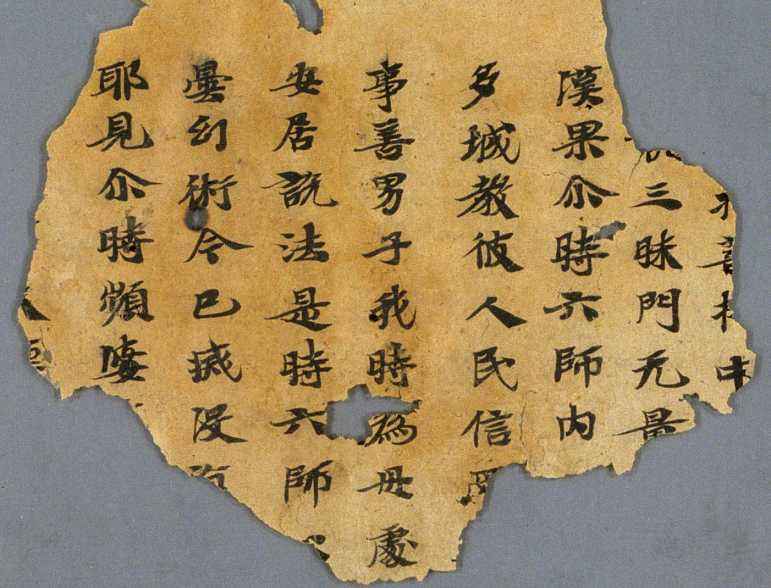 三昧門无量
漢果尒時六師内
多城教彼人民信
事善男子我時為母處
安居說法是時六師
曇幻術今已滅没
耶見尒時頻婆